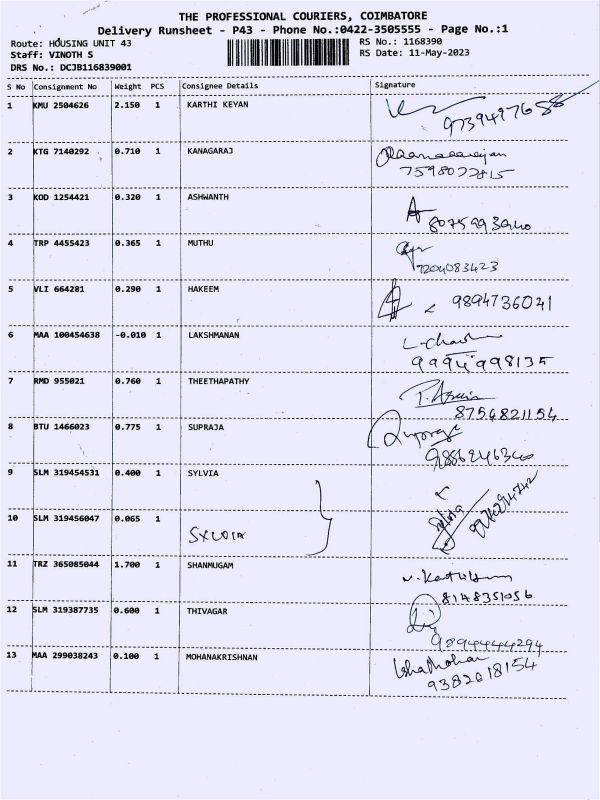 THE PROFESSIONAL COURIERS, COIMBATORE
Delivery Runsheet - P43 - Phone No.:0422-3505555 - Page No.:1
Route: HOUSING UNIT 43
RS No.: 1168390
Staff: VINOTH S
RS Date: 11-May-2023
DRS No.: DCJB116839001
S No Consignment No Weight PCS Consignee Details Signature
1 KMU 2504626 2.150 1 KARTHI KEYAN
9739497688
2 KTG 7140292 0.710 1 KANAGARAJ
7598022815
3 KOD 1254421 0.320 1 ASHWANTH
8075993940
4 TRP 4455423 0.365 1 MUTHU
7204083423
5 VLI 664281 0.290 1 HAKEEM
9894736041
6 MAA 100454638 -0.010 1 LAKSHMANAN
9994998135
7 RMD 955021 0.760 1 THEETHAPATHY
8754821154
8 BTU 1466023 0.775 1 SUPRAJA
9886246340
9 SLM 319454531 0.400 1 SYLVIA
10 SLM 319456047 0.065 1
Sylvia
11 TRZ 365085044 1.700 1 SHANMUGAM
8148351056
12 SLM 319387735 0.600 1 THIVAGAR
9894444294
13 MAA 299038243 0.100 1 MOHANAKRISHNAN
9382618154